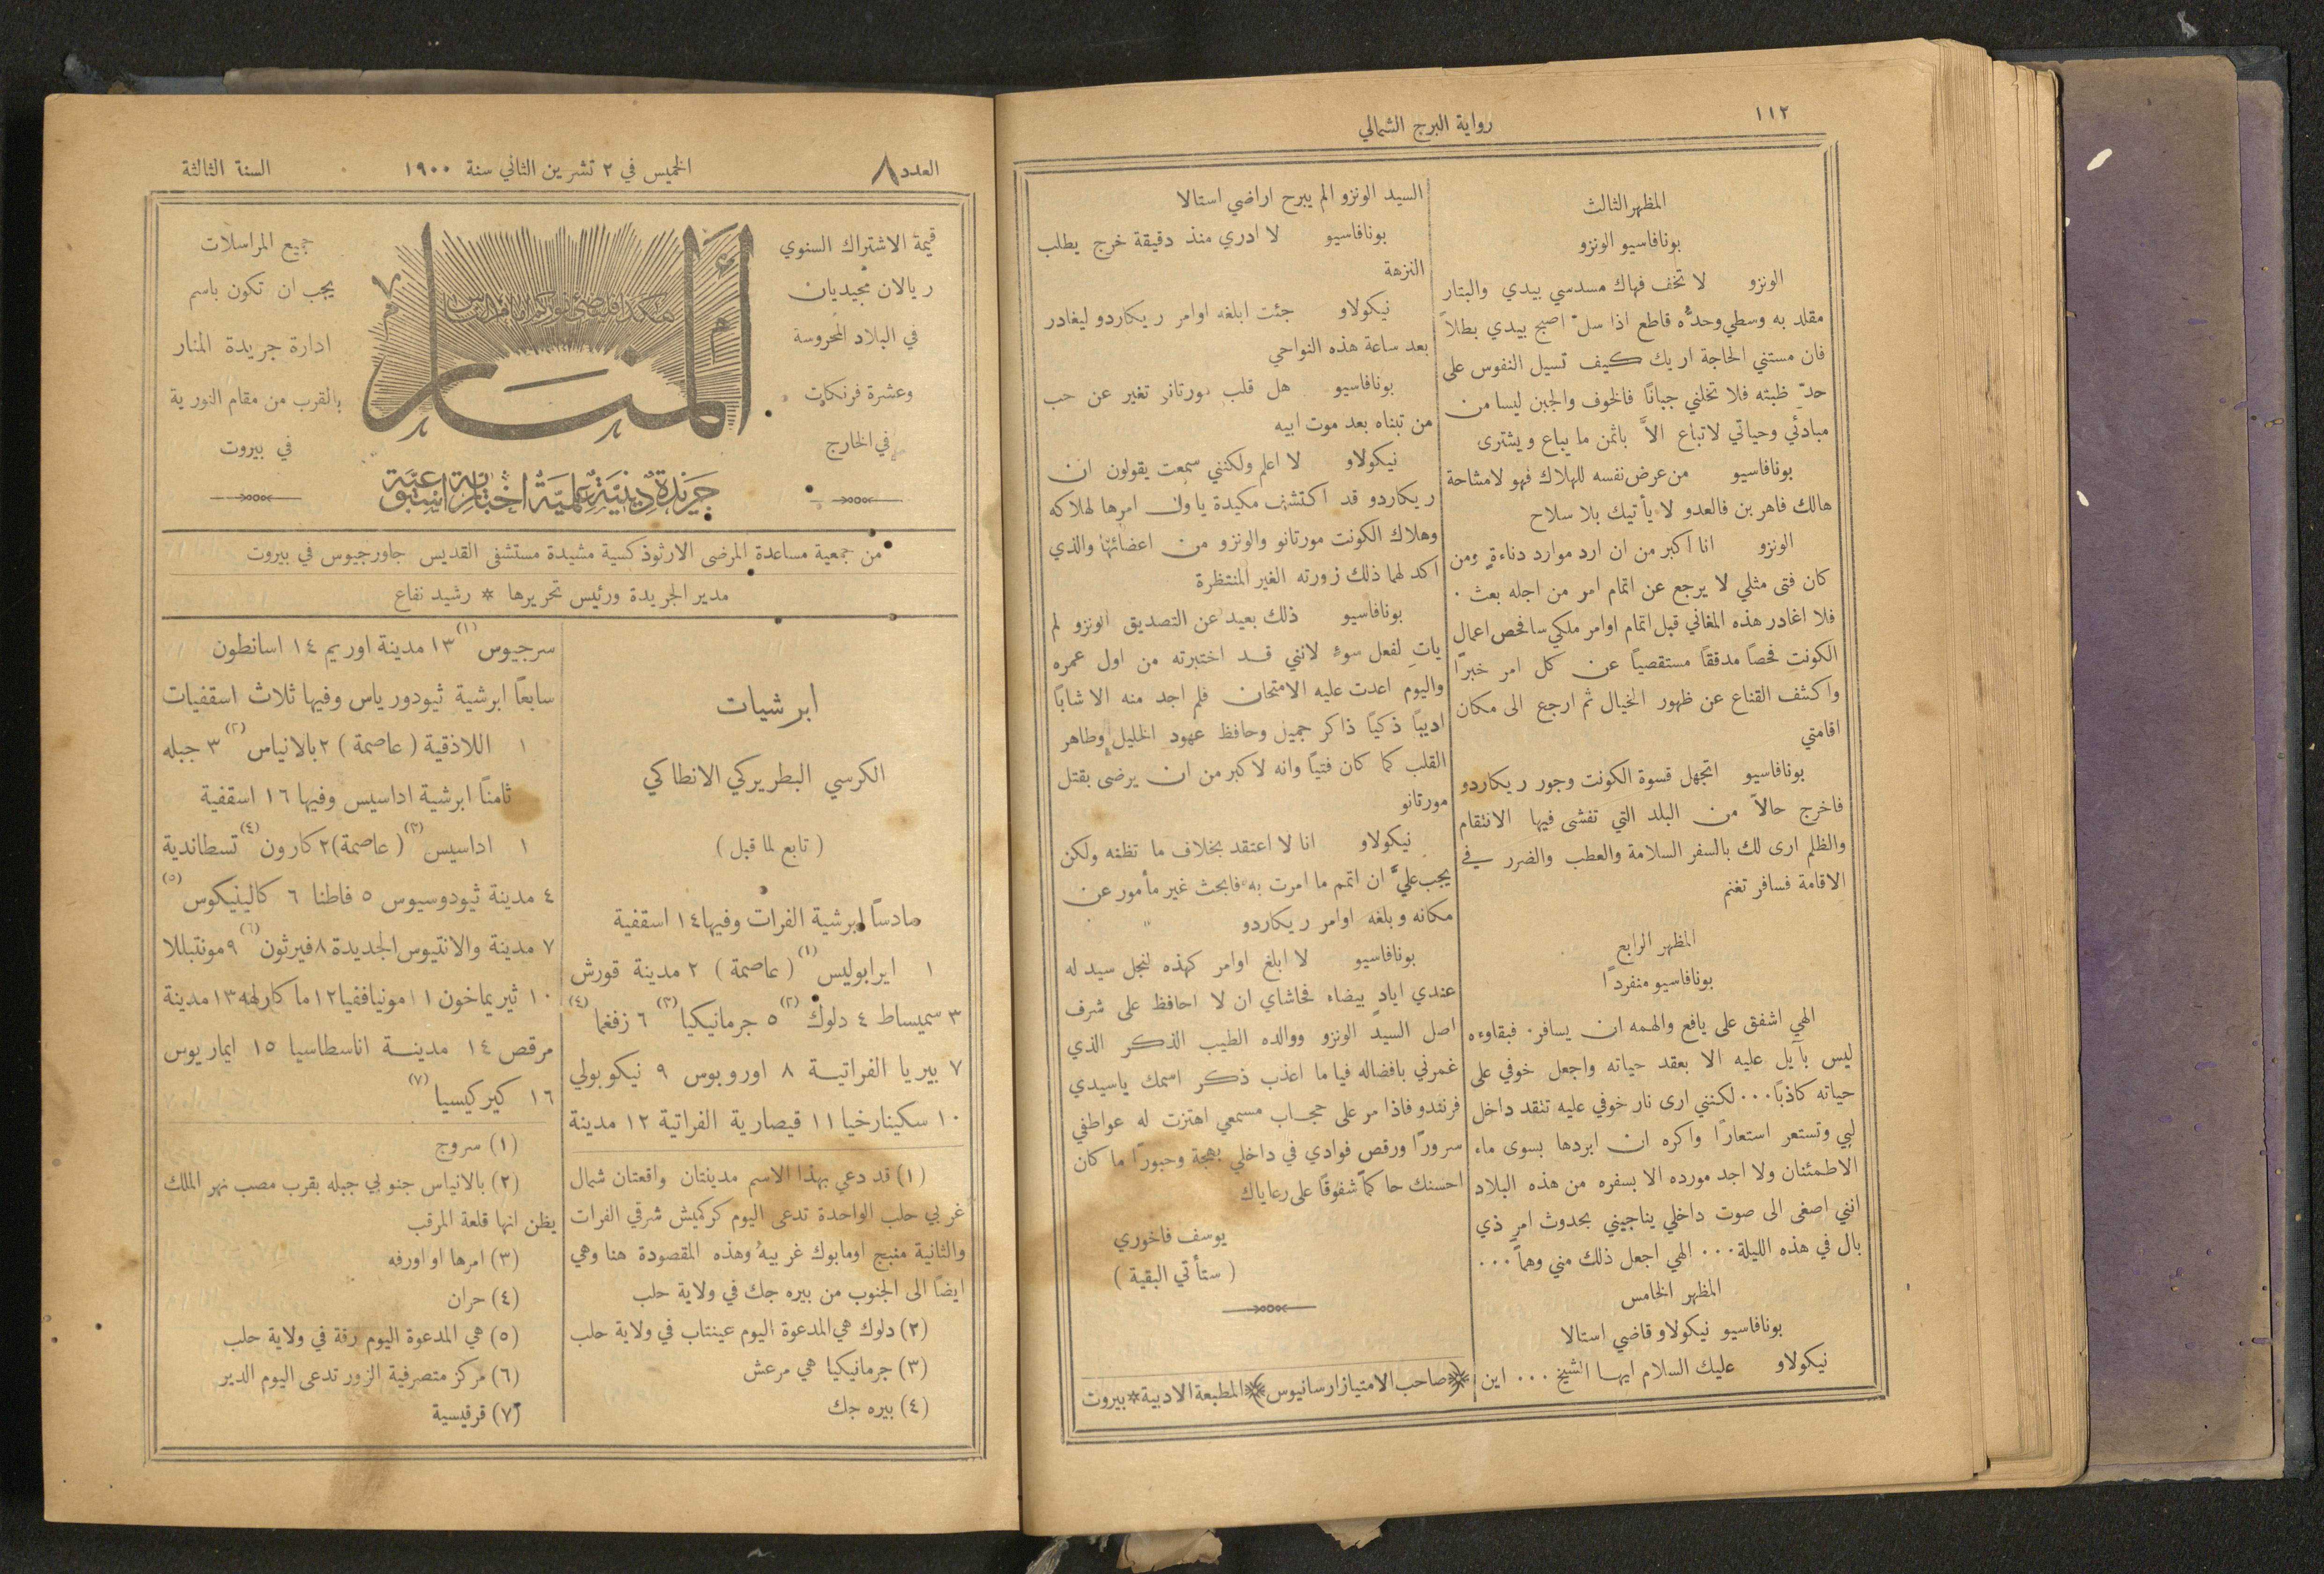 ١١٢
رواية البرج الشمالي
المظهر الثالث
بونافاسيو الونزو
الونزو لا تخف فهاك مسدسي بيدي والبتار
مقلد به وسطي وحدُّه قاطع اذا سلّ اصبح بيدي بطلاً
فان مستني الحاجة اريك كيف تسيل النفوس على
حدّ ظبته فلا تخلني جبانًا فالخوف والجبن ليسا من
مبادئي وحياتي لا تباع الاَّ باثمن ما يباع ويشترى
بونافاسيو من عرض نفسه للهلاك فهو لا مشاحة
هالك فاهربن فالعدو لا يأتيك بلا سلاح
الونزو انا اكبر من ان ارد موارد دناءةٍ ومن
كان فتى مثلي لا يرجع عن اتمام امر من اجله بعث .
فلا اغادر هذه المغاني قبل اتمام اوامر ملكي سافحص اعمال
الكونت فحصًا مدققًا مستقصيًا عن كل امر خبرًا
واكشف القناع عن ظهور الخيال ثم ارجع الى مكان
اقامتي
بونافاسيو اتجهل قسوة الكونت وجور ريكاردو
فاخرج حالاً من البلد التي تفشى فيها الانتقام
والظلم ارى لك بالسفر السلامة والعطب والضرر في
الاقامة فسافر تغنم
المظهر الرابع
بونافاسيو منفردًا
الهي اشفق على يافع والهمه ان يسافر . فبقاوءه
ليس بآيل عليه الا بعقد حياته واجعل خوفي على
حياته كاذبًا . . . لكنني ارى نار خوفي عليه تتقد داخل
لبي وتستعر استعارًا واكره ان ابردها بسوى ماء
الاطمئنان ولا اجد مورده الا بسفره من هذه البلاد
انني اصغى الى صوت داخلي يناجيني بحدوث امرٍ ذي
بال في هذه الليلة . . . الهي اجعل ذلك مني وهماً . . .
المظهر الخامس
بونافاسيو نيكولاو قاضي استالا
نيكولاو عليك السلام ايها الشيخ . . . اين
السيد الونزو الم يبرح اراضي استالا
بونافاسيو لا ادري منذ دقيقة خرج يطلب
النزهة
نيكولاو جئت ابلغه اوامر ريكاردو ليغادر
بعد ساعة هذه النواحي
بونافاسيو هل قلب مورتانو تغير عن حب
من تبناه بعد موت ابيه
نيكولاو لا اعلم ولكنني سمعت يقولون ان
ريكاردو قد اكتشف مكيدة ياول امرها لهلاكه
وهلاك الكونت مورتانو والونزو من اعضائها والذي
اكد لهما ذلك زورته الغير المنتظرة
بونافاسيو ذلك بعيد عن التصديق الونزو لم
يات لفعل سوءٍ لانني قد اختبرته من اول عمره
واليوم اعدت عليه الامتحان فلم اجد منه الا شابًا
اديبًا ذكيًا ذاكر جميل وحافظ عهود الخليل وطاهر
القلب كما كان فتيًا وانه لاكبر من ان يرضى بقتل
مورتانو
نيكولاو انا لا اعتقد بخلاف ما تظنه ولكن
يجب عليَّ ان اتمم ما امرت به فابحث غير مأمور عن
مكانه وبلغه اوامر ريكاردو
بونافاسيو لا ابلغ اوامر كهذه لنجل سيد له
عندي ايادٍ بيضاء فحاشاي ان لا احافظ على شرف
اصل السيد الونزو ووالده الطيب الذكر الذي
غمرني بافضاله فيا ما اعذب ذكر اسمك ياسيدي
فرنندو فاذا مر على حجاب مسمعي اهتزت له عواطفي
سرورًا ورقص فوادي في داخلي بهجة وحبورًا ما كان
احسنك حاكماً شفوقًا على رعاياك
يوسف فاخوري
( ستأتي البقية )
صاحب الامتياز ارسانيوس المطبعة الادبية * بيروت
العدد ٨
الخميس في ٢ تشرين الثاني سنة ١٩٠٠
السنة الثالثة
قيمة الاشتراك السنوي
ريالان مجيديان
في البلاد المحروسة
وعشرة فرنكات
في الخارج
المنار
جريدة دينية علمية اخبارية اسبوعية
جميع المراسلات
يجب ان تكون باسم
ادارة جريدة المنار
بالقرب من مقام النورية
في بيروت
من جمعية مساعدة المرضى الارثوذكسية مشيدة مستشفى القديس جاورجيوس في بيروت
مدير الجريدة ورئيس تحريرها * رشيد نفاع
ابرشيات
الكرسي البطريركي الانطاكي
( تابع لما قبل )
سادسًا ابرشية الفرات وفيها ١٤ اسقفية
١ ايرابوليس (١) ( عاصمة ) ٢ مدينة قورش
٣ سميساط ٤ دلوك (٢) ٥ جرمانيكيا (٣) ٦ زفغما (٤)
٧ بيريا الفراتية ٨ اوروبوس ٩ نيكوبولي
١٠ سكينارخيا ١١ قيصارية الفراتية ١٢ مدينة
(١) قد دعي بهذا الاسم مدينتان واقعتان شمال
غربي حلب الواحدة تدعى اليوم كركميش شرقي الفرات
والثانية منبج اومابوك غربيهُ وهذه المقصودة هنا وهي
ايضًا الى الجنوب من بيره جك في ولاية حلب
(٢) دلوك هي المدعوة اليوم عينتاب في ولاية حلب
(٣) جرمانيكيا هي مرعش
(٤) بيره جك
سرجيوس (١) ١٣ مدينة اوريم ١٤ اسانطون
سابعًا ابرشية ثيودورياس وفيها ثلاث اسقفيات
١ اللاذقية ( عاصمة ) ٢ بالانياس (٢) ٣ جبله
ثامنًا ابرشية اداسيس وفيها ١٦ اسقفية
١ اداسيس (٣) ( عاصمة ) ٢ كارون (٤) تسطاندية
٤ مدينة ثيودوسيوس ٥ فاطنا ٦ كالينيكوس (٥)
٧ مدينة والانتيوس الجديدة ٨ فيرثون (٦) ٩ مونتبللا
١٠ ثيريماخون ١١ مونيافقيا ١٢ ماكارلهه ١٣ مدينة
مرقص ١٤ مدينة اناسطاسيا ١٥ ايماريوس
١٦ كيركيسيا (٧)
(١) سروج
(٢) بالانياس جنوبي جبله بقرب مصب نهر الملك
يظن انها قلعة المرقب
(٣) امرها او اورفه
(٤) حران
(٥) هي المدعوة اليوم رقة في ولاية حلب
(٦) مركز متصرفية الزور تدعى اليوم الدير
(٧) قرقيسية